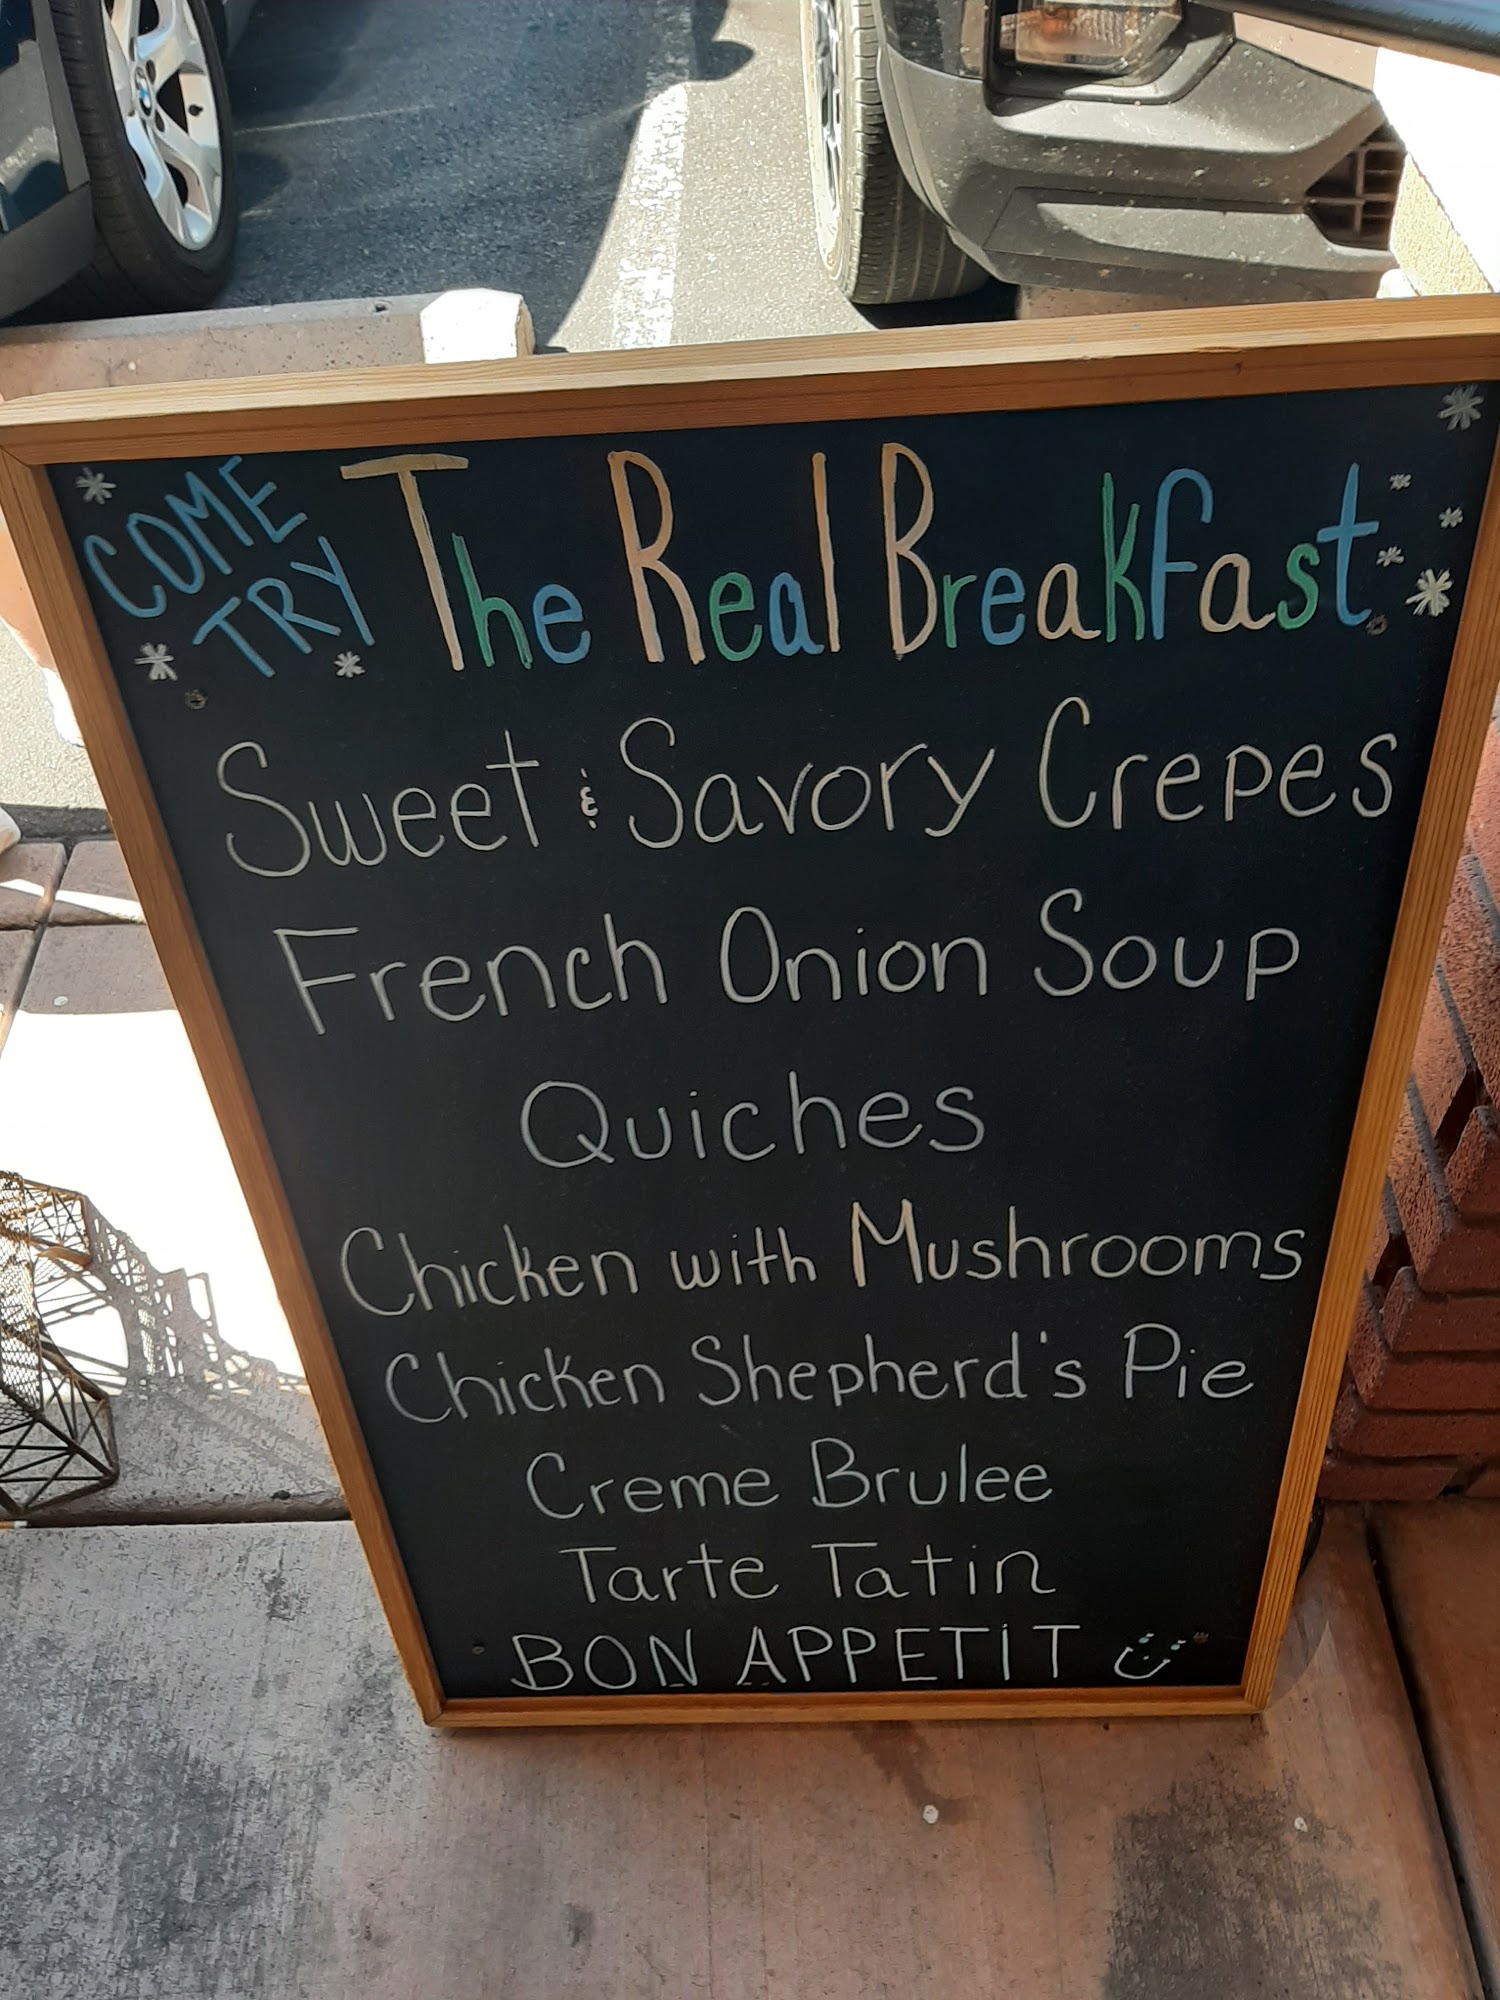 COME
TRY
The Real Breakfast
Sweet & Savory Crepes
French Onion Soup
Quiches
Chicken with Mushrooms
Chicken Shepherd's Pie
Creme Brulee
Tarte Tatin
BON APPETIT